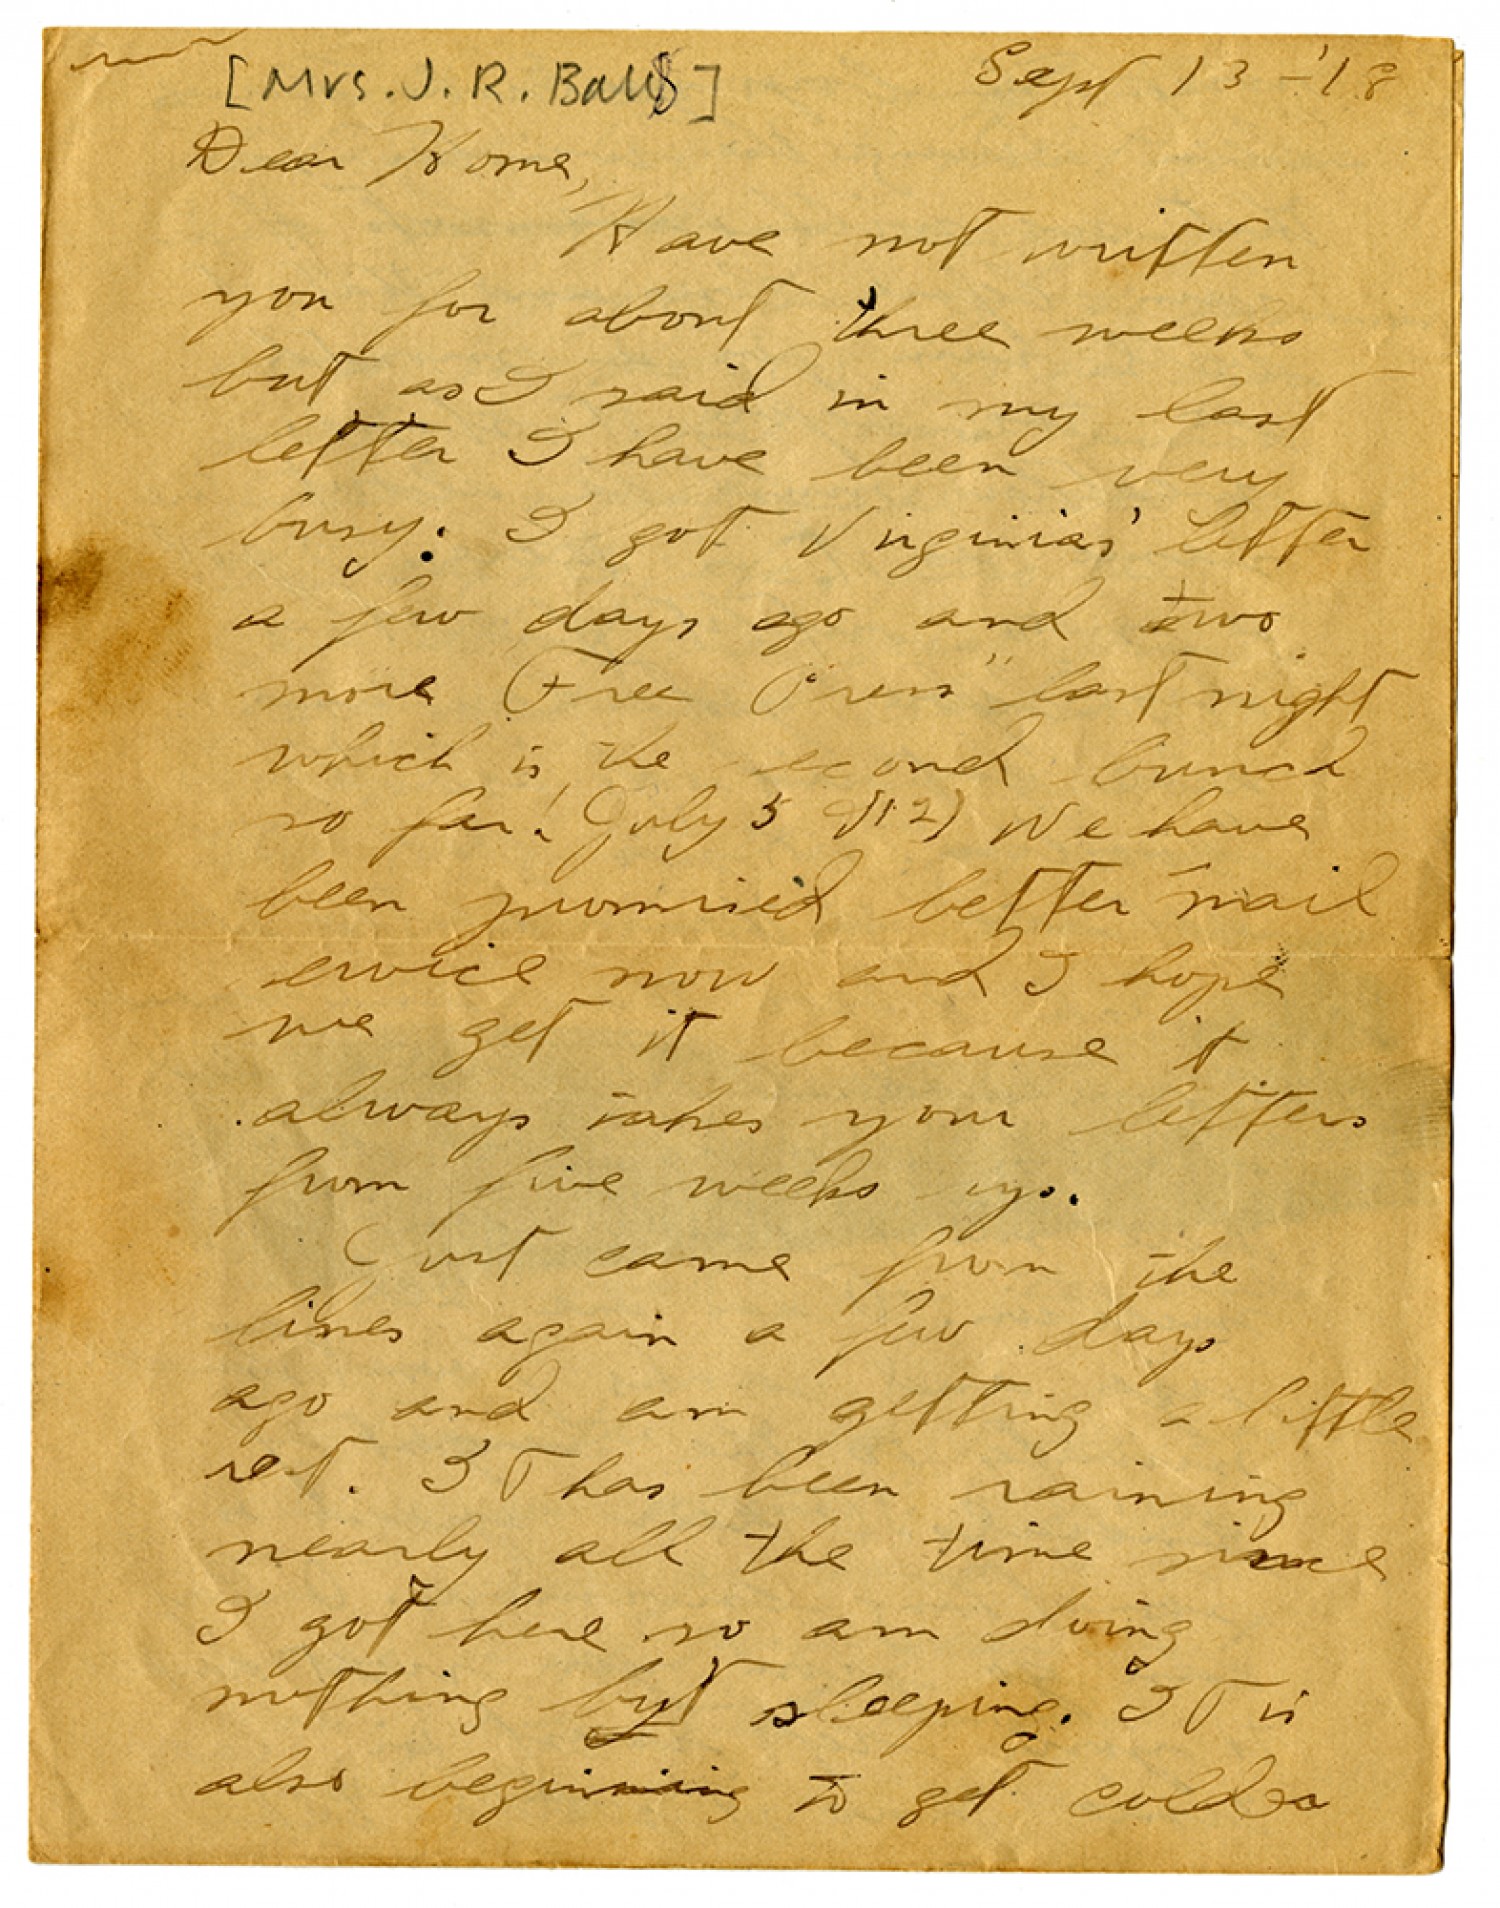 [Mrs. J. R. Balls]
Sept 13 - '18
Dear Home,
Have not written
you for about three weeks
but as I said in my last
letter I have been very
busy. I got Virginias' letter
a few days ago and two
more "Free Press" last night
which is the second bunch
so far! (July 5 & 12) We have
been promised better mail
service now and I hope
we get it because it
always takes your letters
from five weeks up.
Just came from the
lines again a few days
ago and am getting a little
rest. It has been raining
nearly all the time since
I got here so am doing
nothing but sleeping. It is
also beginning to get cold